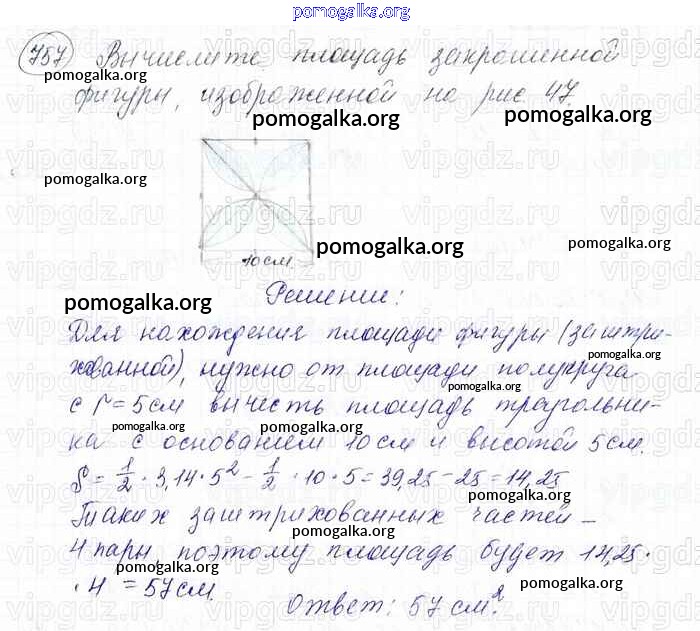 pomogalka.org
757 Вычислите площадь закрашенной
pomogalka.org
фигуры, изображенной на рис. 47
pomogalka.org pomogalka.org
vipgdz.ru vipgdz.ru vipgdz.ru
pomogalka.org
pomogalka.org
pomogalka.org
10 см.
Решение:
pomogalka.org
Для нахождения площади фигуры (заштри-
pomogalka.org
хованной), нужно от площади полукруга
pomogalka.org
с r = 5 см вычесть площадь треугольни-
pomogalka.org pomogalka.org
ка с основанием 10 см и высотой 5 см.
S = 1/2 · 3,14 · 5² - 1/2 · 10 · 5 = 39,25 - 25 = 14,25
pomogalka.org
Таких заштрихованных частей -
pomogalka.org
4 пары, поэтому площадь будет 14,25 ·
pomogalka.org
· 4 = 57 см.
pomogalka.org
Ответ: 57 см².